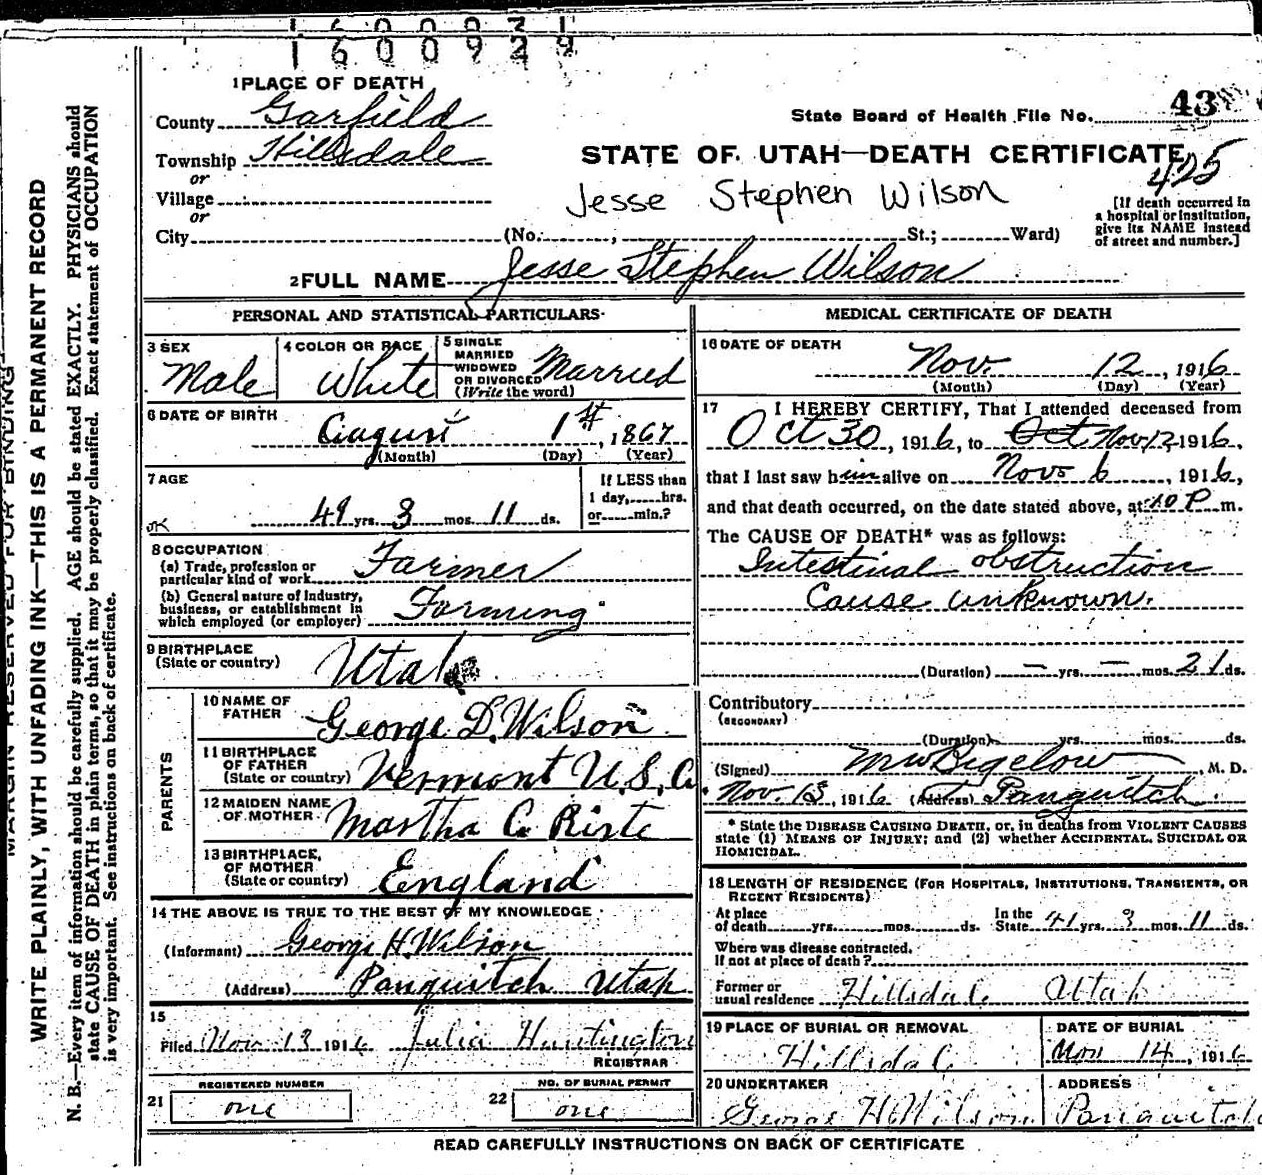 1600931
1600929
1 PLACE OF DEATH
County Garfield
State Board of Health File No. 43
Township Hillsdale
STATE OF UTAH—DEATH CERTIFICATE
425
or
Village
or
Jesse Stephen Wilson
[If death occurred in
a hospital or institution,
give its NAME instead
of street and number.]
City (No. , St.; Ward)
2 FULL NAME Jesse Stephen Wilson
PERSONAL AND STATISTICAL PARTICULARS
3 SEX
Male
4 COLOR OR RACE
White
5 SINGLE
MARRIED
WIDOWED
OR DIVORCED
(Write the word)
Married
6 DATE OF BIRTH
August 1st, 1867
(Month) (Day) (Year)
7 AGE
If LESS than
1 day, hrs.
or min.?
OK
49 yrs. 3 mos. 11 ds.
8 OCCUPATION
(a) Trade, profession or
particular kind of work Farmer
(b) General nature of industry,
business, or establishment in
which employed (or employer) Farming
9 BIRTHPLACE
(State or country) Utah
PARENTS
10 NAME OF
FATHER George D. Wilson
11 BIRTHPLACE
OF FATHER
(State or country) Vermont U.S.A.
12 MAIDEN NAME
OF MOTHER Martha C. Riste
13 BIRTHPLACE,
OF MOTHER
(State or country) England
14 THE ABOVE IS TRUE TO THE BEST OF MY KNOWLEDGE
(Informant) George H. Wilson
(Address) Panguitch Utah
15
Filed Nov 13 1916 Julia Huntington
REGISTRAR
21 REGISTERED NUMBER
one
22 NO. OF BURIAL PERMIT
one
MEDICAL CERTIFICATE OF DEATH
16 DATE OF DEATH
Nov. 12, 1916
(Month) (Day) (Year)
17 I HEREBY CERTIFY, That I attended deceased from
Oct 30, 1916, to Oct Nov, 12, 1916,
that I last saw him alive on Nov 6, 1916,
and that death occurred, on the date stated above, at 10 P m.
The CAUSE OF DEATH* was as follows:
Intestinal obstruction
Cause unknown.
(Duration) — yrs. — mos. 21 ds.
Contributory
(SECONDARY)
(Duration) yrs. mos. ds.
(Signed) MW Bigelow, M. D.
Nov. 13, 1916 (Address) Panguitch
* State the DISEASE CAUSING DEATH, or, in deaths from VIOLENT CAUSES
state (1) MEANS OF INJURY; and (2) whether ACCIDENTAL, SUICIDAL OR
HOMICIDAL.
18 LENGTH OF RESIDENCE (FOR HOSPITALS, INSTITUTIONS, TRANSIENTS, OR
RECENT RESIDENTS)
At place
of death yrs. mos. ds.
In the
State 41 yrs. 3 mos. 11 ds.
Where was disease contracted.
If not at place of death?
Former or
usual residence Hillsdale Utah
19 PLACE OF BURIAL OR REMOVAL
Hillsdale
DATE OF BURIAL
Nov 14, 1916
20 UNDERTAKER
George H Wilson
ADDRESS
Panguitch
READ CAREFULLY INSTRUCTIONS ON BACK OF CERTIFICATE
MARGIN RESERVED FOR BINDING
WRITE PLAINLY, WITH UNFADING INK—THIS IS A PERMANENT RECORD
N. B.—Every item of information should be carefully supplied. AGE should be stated EXACTLY. PHYSICIANS should
state CAUSE OF DEATH in plain terms, so that it may be properly classified. Exact statement of OCCUPATION
is very important. See instructions on back of certificate.